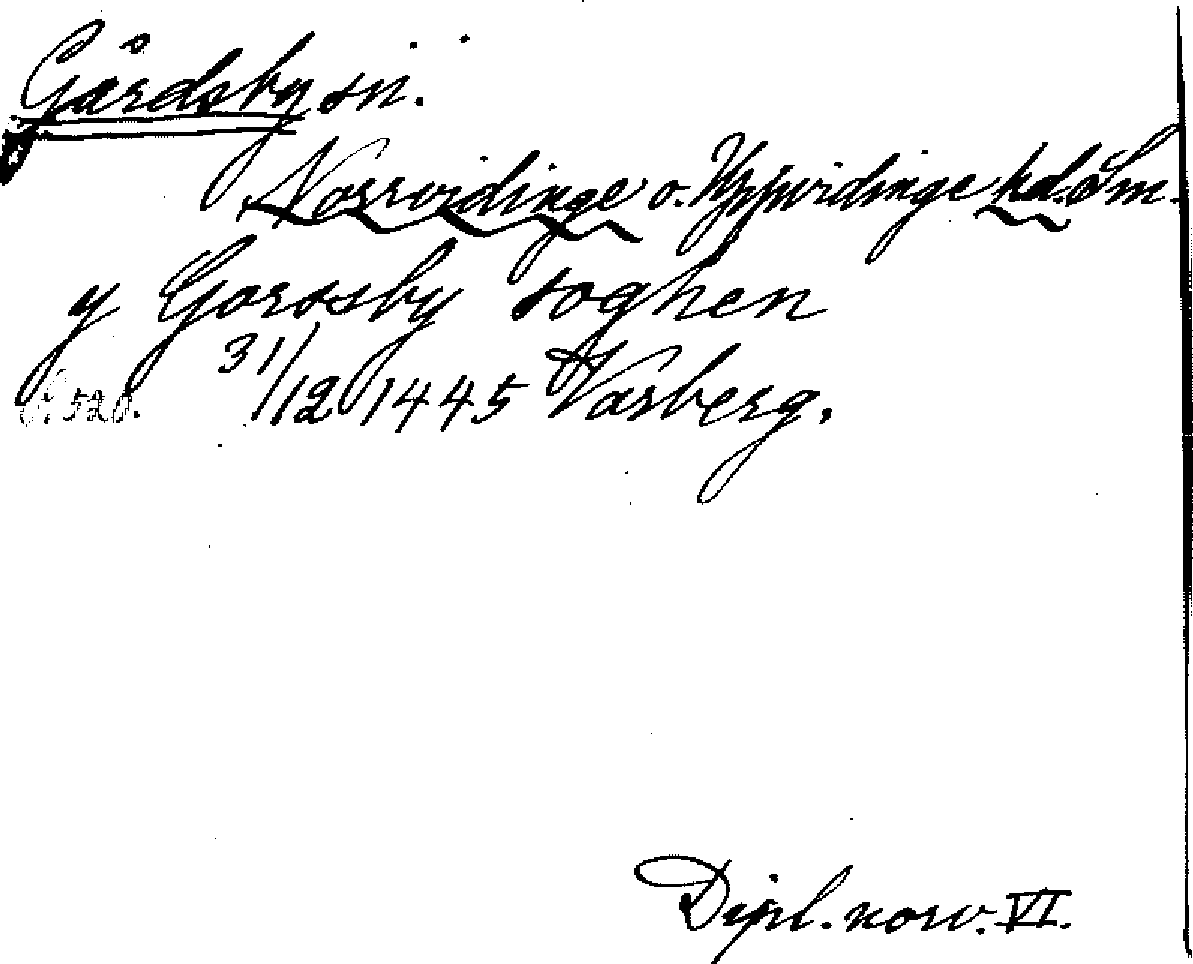 Gårdsby sn.
Norrvidinge o. Uppvidinge hd. Sm.
y Gorosby soghen
s. 520. 31/12 1445 Varberg.
Dipl. norv. VI.